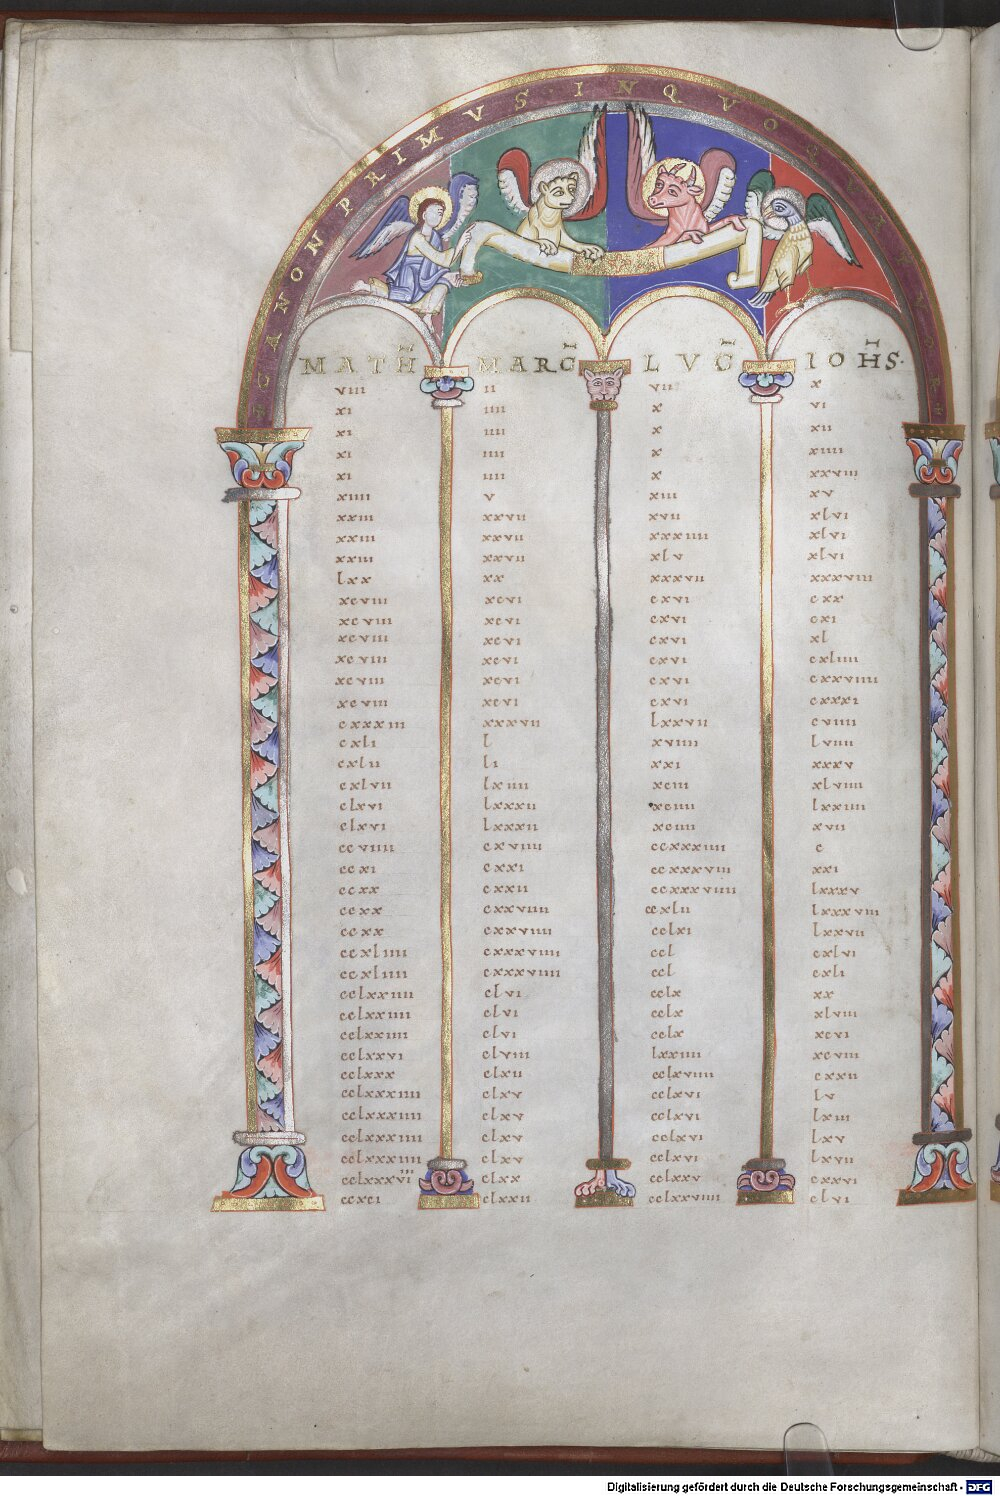 ✝ CANON PRIMVS · IN QVO QVATTVOR ✝
MATH̄ MARC̄ LVC̄ IOH̄S·
viii ii vii x
xi iiii x vi
xi iiii x xii
xi iiii x xiiii
xi iiii x xxviii
xiiii v xiii xv
xxiii xxvii xvii xlvi
xxiii xxvii xxxiiii xlvi
xxiii xxvii xlv xlvi
lxx xx xxxvii xxxviii
xcviii xcvi cxvi cxx
xcviii xcvi cxvi cxi
xcviii xcvi cxvi xl
xcviii xcvi cxvi cxliiii
xcviii xcvi cxvi cxxviiii
xcviii xcvi cxvi cxxxi
cxxxiii xxxvii lxxvii cviiii
cxli l xviiii lviiii
cxlii li xxi xxxv
cxlvii lxiiii xciii xlviiii
clxvi lxxxii xciiii lxxiiii
clxvi lxxxii xciiii xvii
ccviiii cxviiii ccxxxiiii c
ccxi cxxi ccxxxviii xxi
ccxx cxxii ccxxxviiii lxxxv
ccxx cxxviiii ccxlii lxxxviii
ccxx cxxviiii cclxi lxxvii
ccxliiii cxxxviiii ccl cxlvi
ccxliiii cxxxviiii ccl cxli
cclxxiiii clvi cclx xx
cclxxiiii clvi cclx xlviii
cclxxiiii clvi cclx xcvi
cclxxvi clviii lxxiiii xcviii
cclxxx clxii cclxviiii cxxii
cclxxxiiii clxv cclxvi lv
cclxxxiiii clxv cclxvi lxiii
cclxxxiiii clxv cclxvi lxv
cclxxxiiii clxv cclxvi lxvii
cclxxxviiii clxx cclxxv cxxvi
ccxci clxxii cclxxviiii clvi
Digitalisierung gefördert durch die Deutsche Forschungsgemeinschaft - DFG